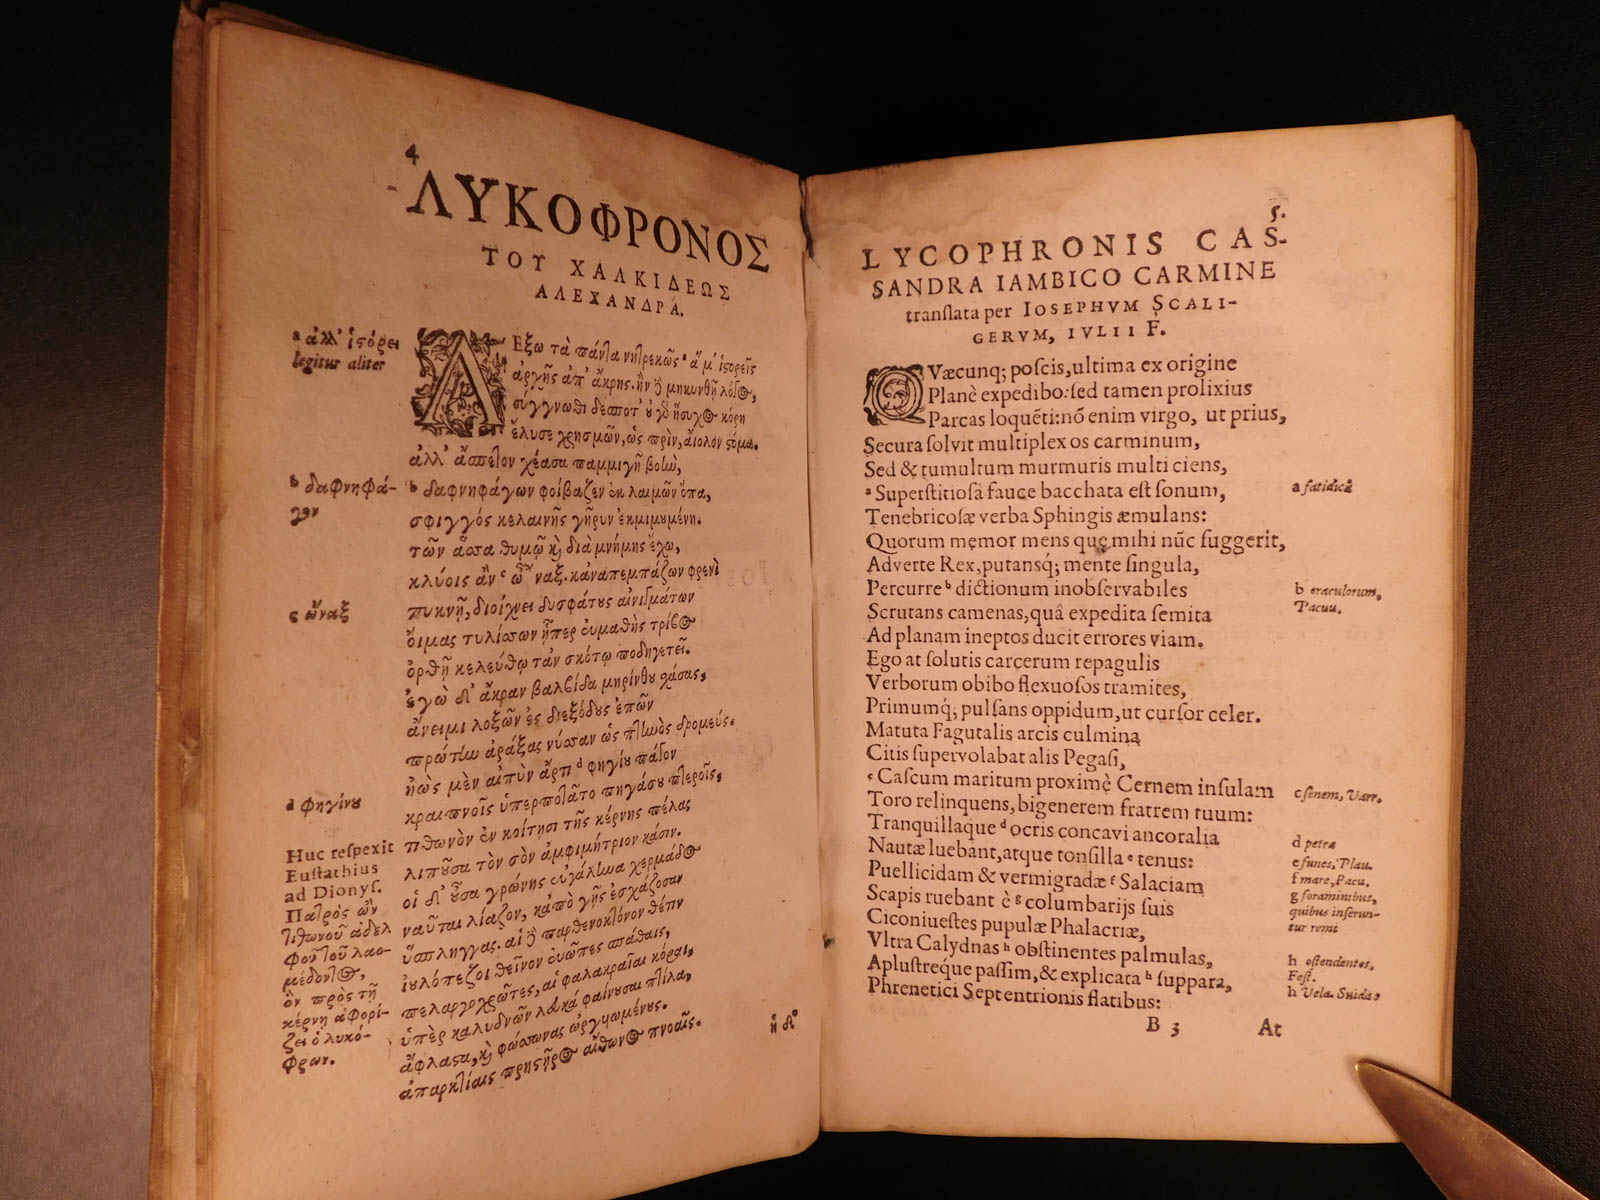 4
ΛΥΚΟΦΡΟΝΟΣ
ΤΟΥ ΧΑΛΚΙΔΕΩΣ
ΑΛΕΞΑΝΔΡΑ.
a ἀλλ' ἱστόρει
legitur aliter
ΛΕξω τὰ πάντα νητρεκῶς a ἅ μ' ἱστορεῖς
ἀρχῆς ἀπ' ἄκρης. ἢν δὲ μηκυνθῇ λόγος,
σύγγνωθι δέσποτ' οὐ γὸ ἥσυχος κόρη
ἔλυσε χρησμῶν, ὡς πρὶν, αἰόλον στόμα.
ἀλλ' ἄσπετον χέασα παμμιγῆ βοὴν,
b δαφνηφά-
γον
b δαφνηφάγων φοίβαζεν ἐκ λαιμῶν ὄπα,
σφιγγός κελαινῆς γῆρυν ἐκμιμουμένη.
τῶν ἅσσα θυμῷ καὶ διὰ μνήμης ἔχω,
κλύοις ἂν c ὦ ναξ. κἀναπεμπάζων φρενὶ
c ὦναξ
πυκνῇ, διοίχνει δυσφάτους αἰνιγμάτων
οἴμας τυλίσσων ᾗπερ εὐμαθὴς τρίβος
ὀρθῇ κελεύθῳ τἀν σκότῳ ποδηγετεῖ.
ἐγὼ δ' ἄκραν βαλβίδα μηρίνθου χάσας,
ἄνειμι λοξῶν ἐς διεξόδους ἐπῶν
πρώτην ἀράξας νύσσαν ὡς πτηνὸς δρομεύς.
ἠὼς μὲν αἰπὺν ἄρτι d φηγίου πάγον
d φηγίνου
κραιπνοῖς ὑπερποτᾶτο πηγάσου πτεροῖς,
τιθωνὸν ἐν κοίτῃσι τῆς κέρνης πέλας
λιποῦσα τὸν σὸν ἀμφιμήτριον κάσιν.
οἱ δ' οὖσα γρώνης εὐγάληνα χερμάδος
ναῦται λίαζον, κἀπὸ γῆς ἐσχάζοσαν
ὕσπληγγας. αἱ δὲ παρθενοκτόνον θέτιν
ἰουλόπεζοι θεῖνον εὐῶπες σπάθαις,
πελαργοχρῶτες, αἱ φαλακραῖαι κόραι,
ὑπὲρ καλυδνῶν λευκὰ φαίνουσαι πτίλα,
ἄφλαστα, καὶ φώσσωνας ὠργυωμένους.
ἀπαρκτίαις πρηστῆρος αἴθωνος πνοαῖς.
Huc respexit
Eustathius
ad Dionys.
Πατρὸς ὢν
τιθωνοῦ ἀδελ
φοῦ τοῦ λαο-
μέδοντος,
ὃν πρὸς τῇ
κέρνῃ ἀφορί-
ζει ὁ λυκό-
φρων.
ἡ δ'
5.
LYCOPHRONIS CAS-
SANDRA IAMBICO CARMINE
translata per IOSEPHVM SCALI-
GERVM, IVLII F.
QVæcunq; poscis, ultima ex origine
Planè expedibo: sed tamen prolixius
Parcas loquēti: nō enim virgo, ut prius,
Secura solvit multiplex os carminum,
Sed & tumultum murmuris multi ciens,
a Superstitiosâ fauce bacchata est sonum,
a fatidicâ
Tenebricosæ verba Sphingis æmulans:
Quorum memor mens quę mihi nūc suggerit,
Adverte Rex, putansq; mente singula,
Percurre b dictionum inobservabiles
b oraculorum,
Pacuu.
Scrutans camenas, quâ expedita semita
Ad planam ineptos ducit errores viam.
Ego at solutis carcerum repagulis
Verborum obibo flexuosos tramites,
Primumq; pulsans oppidum, ut cursor celer.
Matuta Fagutalis arcis culmina
Citis supervolabat alis Pegasi,
c Cascum maritum proximè Cernem insulam
c senem, Varr.
Toro relinquens, bigenerem fratrem tuum:
Tranquillaque d ocris concavi ancoralia
d petræ
Nautæ luebant, atque tonsilla e tenus:
e funes, Plau.
Puellicidam & vermigradæ f Salaciam
f mare, Pacu.
Scapis ruebant è g columbarijs suis
g foraminibus,
quibus inserun-
tur remi
Ciconiuestes pupulæ Phalacriæ,
Vltra Calydnas h obstinentes palmulas,
h ostendentes,
Fest.
Aplustreque passim, & explicata h suppara,
h Vela. Suida,
Phrenetici Septentrionis flatibus:
B 3
At